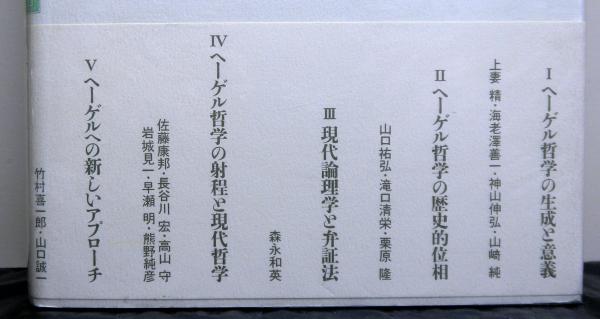 I ヘーゲル哲学の生成と意義
上妻 精・海老澤善一・神山伸弘・山崎 純
II ヘーゲル哲学の歴史的位相
山口祐弘・滝口清栄・栗原 隆
III 現代論理学と弁証法
森永和英
IV ヘーゲル哲学の射程と現代哲学
佐藤康邦・長谷川 宏・高山 守
岩城見一・早瀬 明・熊野純彦
V ヘーゲルへの新しいアプローチ
竹村喜一郎・山口誠一